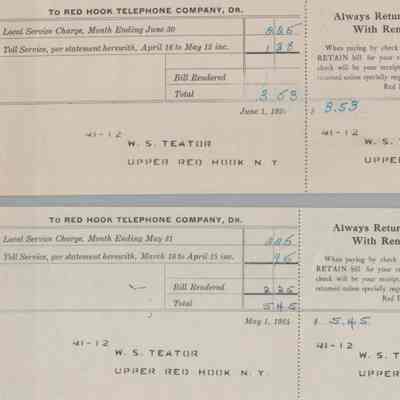 TO RED HOOK TELEPHONE COMPANY, DR.
Local Service Charge, Month Ending June 30 2 25
Toll Service, per statement herewith, April 16 to May 15 inc. 1 28
Bill Rendered
Total 3 53
June 1, 193
41-12
W. S. TEATOR
UPPER RED HOOK N. Y.
Always Retur
With Rem
When paying by check
RETAIN bill for your re
check will be your receipt
returned unless specially requ
Red H
$ 3.53
41-12
W. S.
UPPE
TO RED HOOK TELEPHONE COMPANY, DR.
Local Service Charge, Month Ending May 31 2 25
Toll Service, per statement herewith, March 16 to April 15 inc. 95
Bill Rendered 2 25
Total 5 45
May 1, 193
41-12
W. S. TEATOR
UPPER RED HOOK N. Y.
Always Retur
With Rem
When paying by check
RETAIN bill for your re
check will be your receipt
returned unless specially requ
Red H
$ 5.45
41-12
W. S. T
UPPER